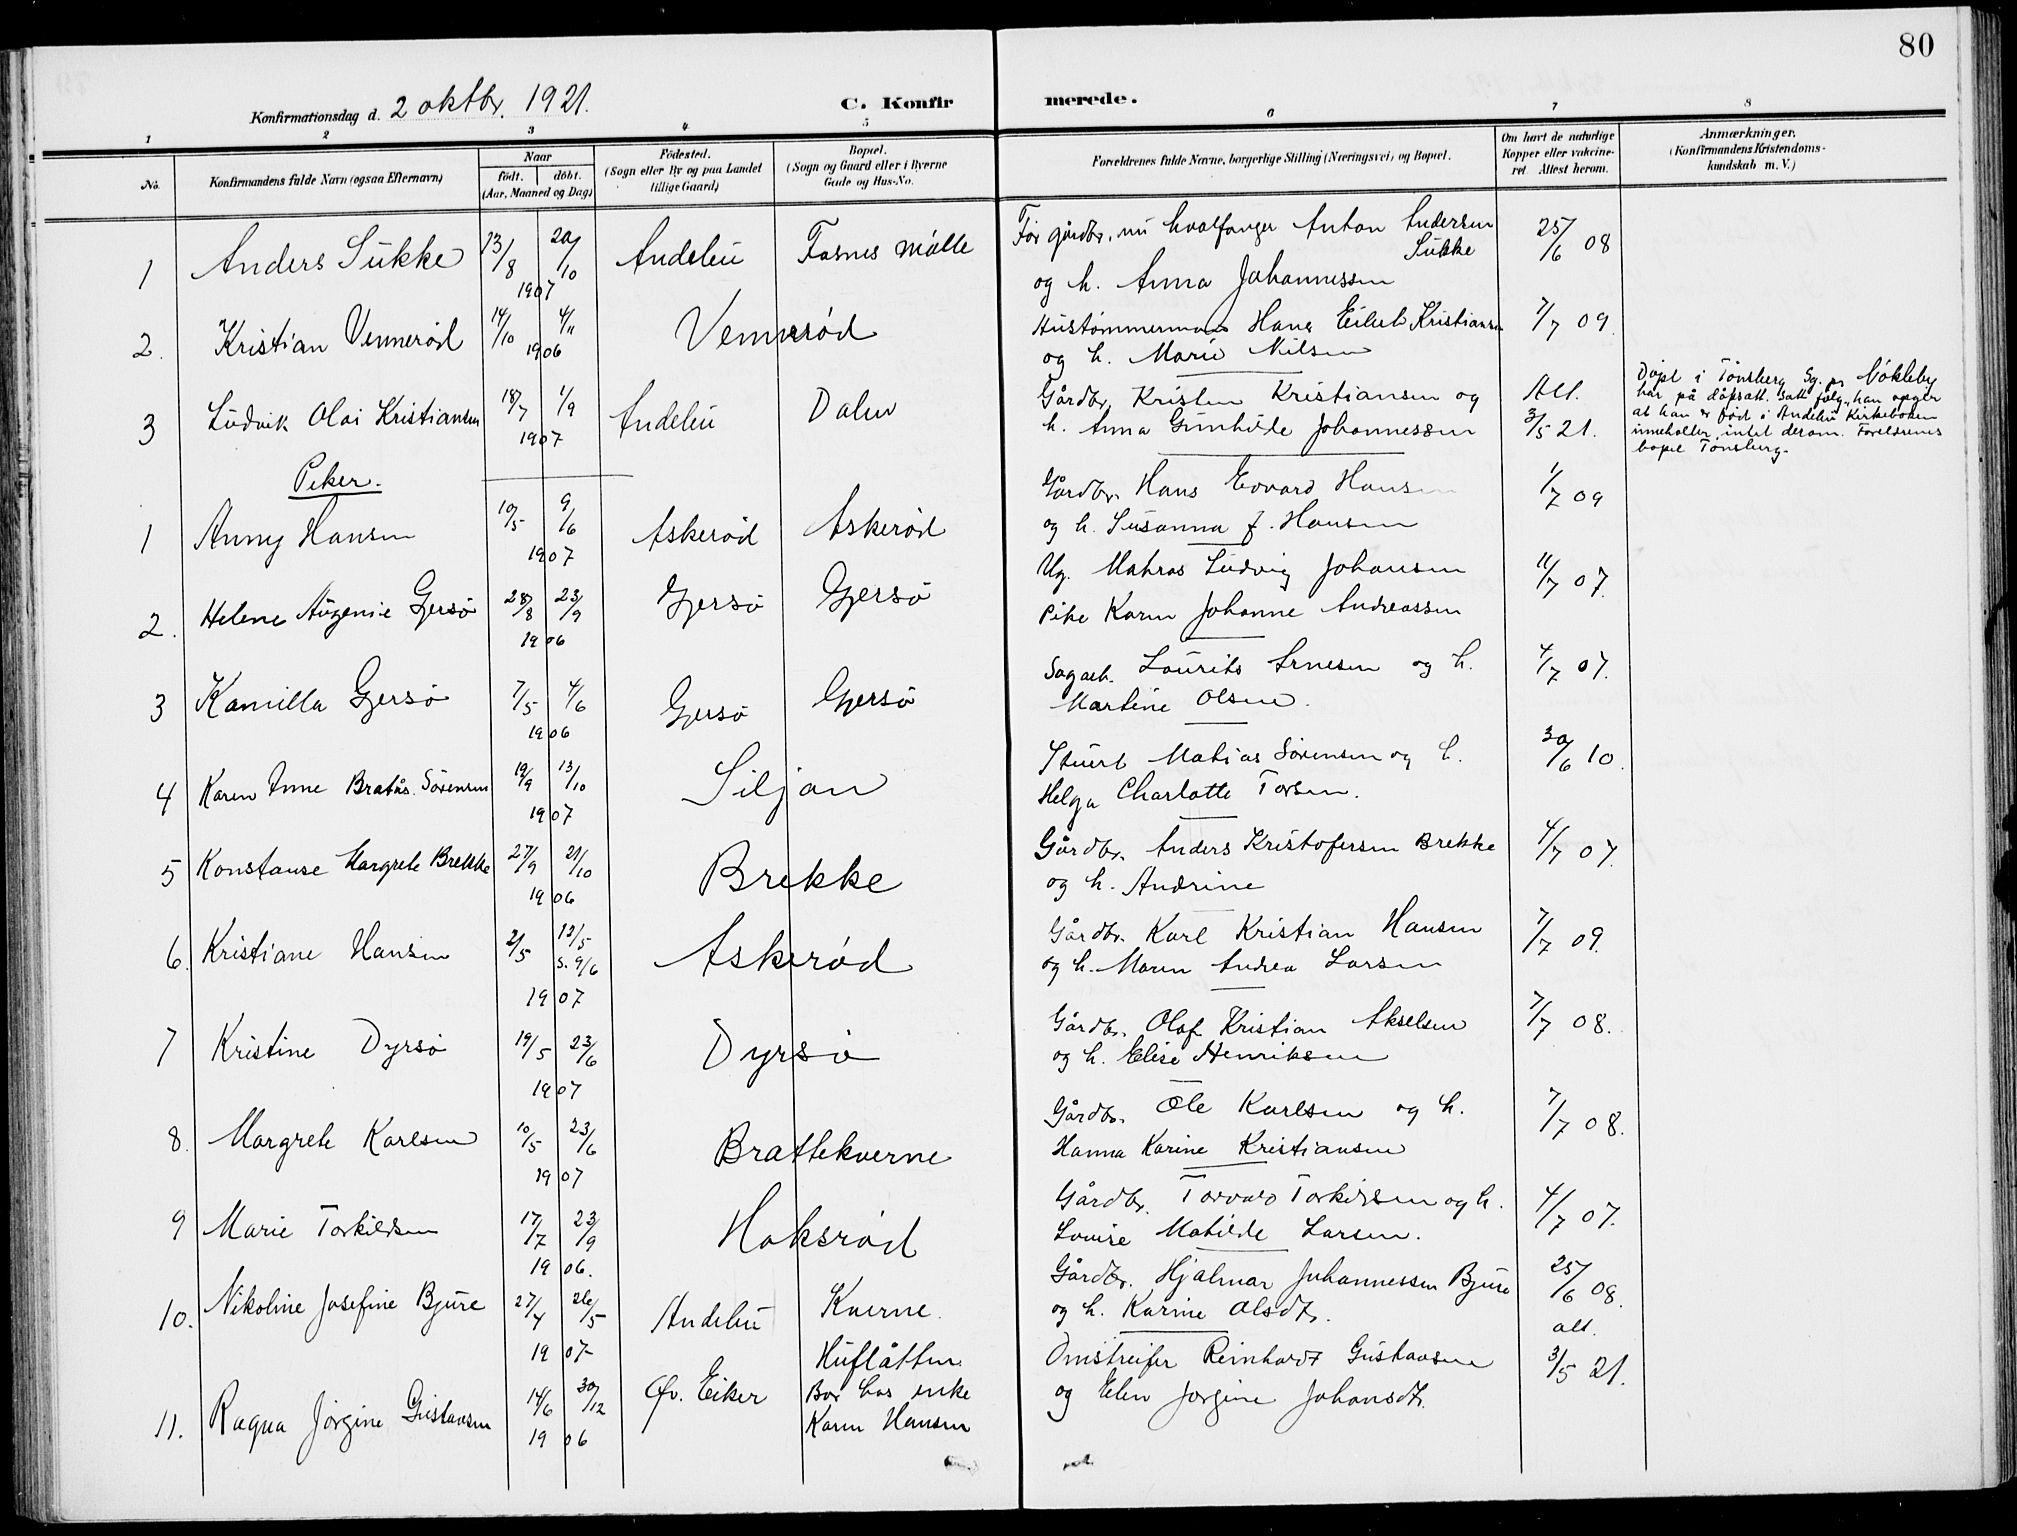 80
Konfirmationsdag d. 2 oktbr. 1921.
C. Konfirmerede.
1 2 3 4 5 6 7 8
No.
Konfirmandens fulde Navn (ogsaa Efternavn)
Naar
født. døbt.
(Aar, Maaned og Dag)
Fødested.
(Sogn eller By og paa Landet
tillige Gaard)
Bopæl.
(Sogn og Gaard eller i Byerne
Gade og Hus-No.
Forældrenes fulde Navne, borgerlige Stilling (Næringsvei) og Bopæl.
Om havt de naturlige
Kopper eller vakcine-
ret. Attest herom.
Anmærkninger.
(Konfirmandens Kristendoms-
kundskab m. V.)
1 Anders Sukke 13/8 20/10 1907 Andebu Fosnes mølle
Før gårdbr. nu hvalfanger Anton Andersen Sukke
og h. Anna Johannessen
25/6 08
2. Kristian Vennerød 14/10 4/11 1906 Vennerød
Hustømmermann Hans Eilert Kristiansen
og h. Marie Nilsen
7/7 09.
3 Ludvik Olai Kristiansen 18/7 1/9 1907 Andebu Dalen
Gårdbr. Kristen Kristiansen og
h. Anna Gunhilde Johannessen
Att.
3/5 21.
Døpt i Tønsberg Sg. pr Nøkleby
har på dåpsatt. satt følg. "han opgir
at han er født i Andebu Kirkeboken
inneholder intet derom. Foreldrenes
bopel Tønsberg.
Piker.
1 Anny Hansen 10/5 9/6 1907 Askerød Askerød
Gårdbr. Hans Edvard Hansen
og h. Susanna J. Hansen
1/7 09
2. Helene Augenie Gjersø 28/8 23/9 1906 Gjersø Gjersø
Ug. Matros Ludvig Johansen
Pike Karen Johanne Andreassen
11/7 07.
3 Kamilla Gjersø 7/5 4/6 1906 Gjersø Gjersø
Sagarb. Lourits Arnesen og h.
Martine Olsen.
4/7 07.
4 Karen Anne Bratås Sørensen 19/9 13/10 1907 Siljan
Stuert Matias Sørensen og h.
Helga Charlotte Torsen.
30/6 10.
5 Konstanse Margrete Brekke 27/9 21/10 1906 Brekke
Gårdbr. Anders Kristofersen Brekke
og h. Andrine
4/7 07.
6. Kristiane Hansen 2/5 12/5 S. 9/6 1907 Askerød
Gårdbr. Karl Kristian Hansen
og h. Maren Andrea Larsen
7/7 09.
7 Kristine Dyrsø 19/5 23/6 1907 Dyrsø
Gårdbr. Olaf Kristian Akselsen
og h. Elise Henriksen
7/7 08.
8. Margrete Karlsen 10/5 23/6 1907 Brattekverne
Gårdbr. Ole Karlsen og h.
Hanna Karine Kristiansen
7/7 08.
9 Marie Torkildsen 17/7 23/9 1906. Hoksrød
Gårdbr. Torvald Torkildsen og h.
Lovise Matilde Larsen.
4/7 07.
10. Nikoline Josefine Bjure 27/4 26/5 1907 Andebu Kverne
Gårdbr. Hjalmar Johannessen Bjure
og h. Karine Olsdtr.
25/6 08.
11. Ragna Jørgine Gustavsen 14/6 30/12 1906 Øv. Eiker
Huflåtten
Bor hos enke
Karen Hansen
Omstreifer Reinhardt Gustavsen
og Elen Jørgine Johansdtr.
att.
3/5 21.